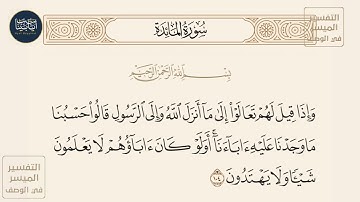 سُورَةُ المَائِدَة
التفسير
الميسر
في الوصف
بِسْمِ اللَّهِ الرَّحْمَٰنِ الرَّحِيمِ
وَإِذَا قِيلَ لَهُمْ تَعَالَوْا۟ إِلَىٰ مَآ أَنزَلَ ٱللَّهُ وَإِلَى ٱلرَّسُولِ قَالُوا۟ حَسْبُنَا
مَا وَجَدْنَا عَلَيْهِ ءَابَآءَنَآ ۚ أَوَلَوْ كَانَ ءَابَآؤُهُمْ لَا يَعْلَمُونَ
شَيْـًٔا وَلَا يَهْتَدُونَ ١٠٤
التفسير
الميسر
في الوصف